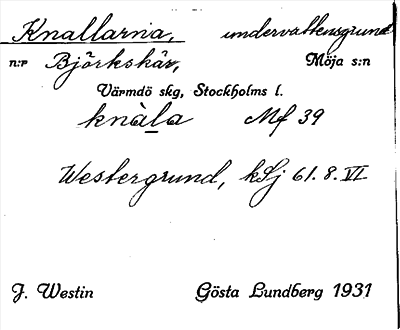 Knallarna, undervattensgrund
n:r Björkskär, Möja s:n
Värmdö skg, Stockholms l.
knàla Mf 39
Westergrund, kSj 61. 8. VI
J. Westin Gösta Lundberg 1931